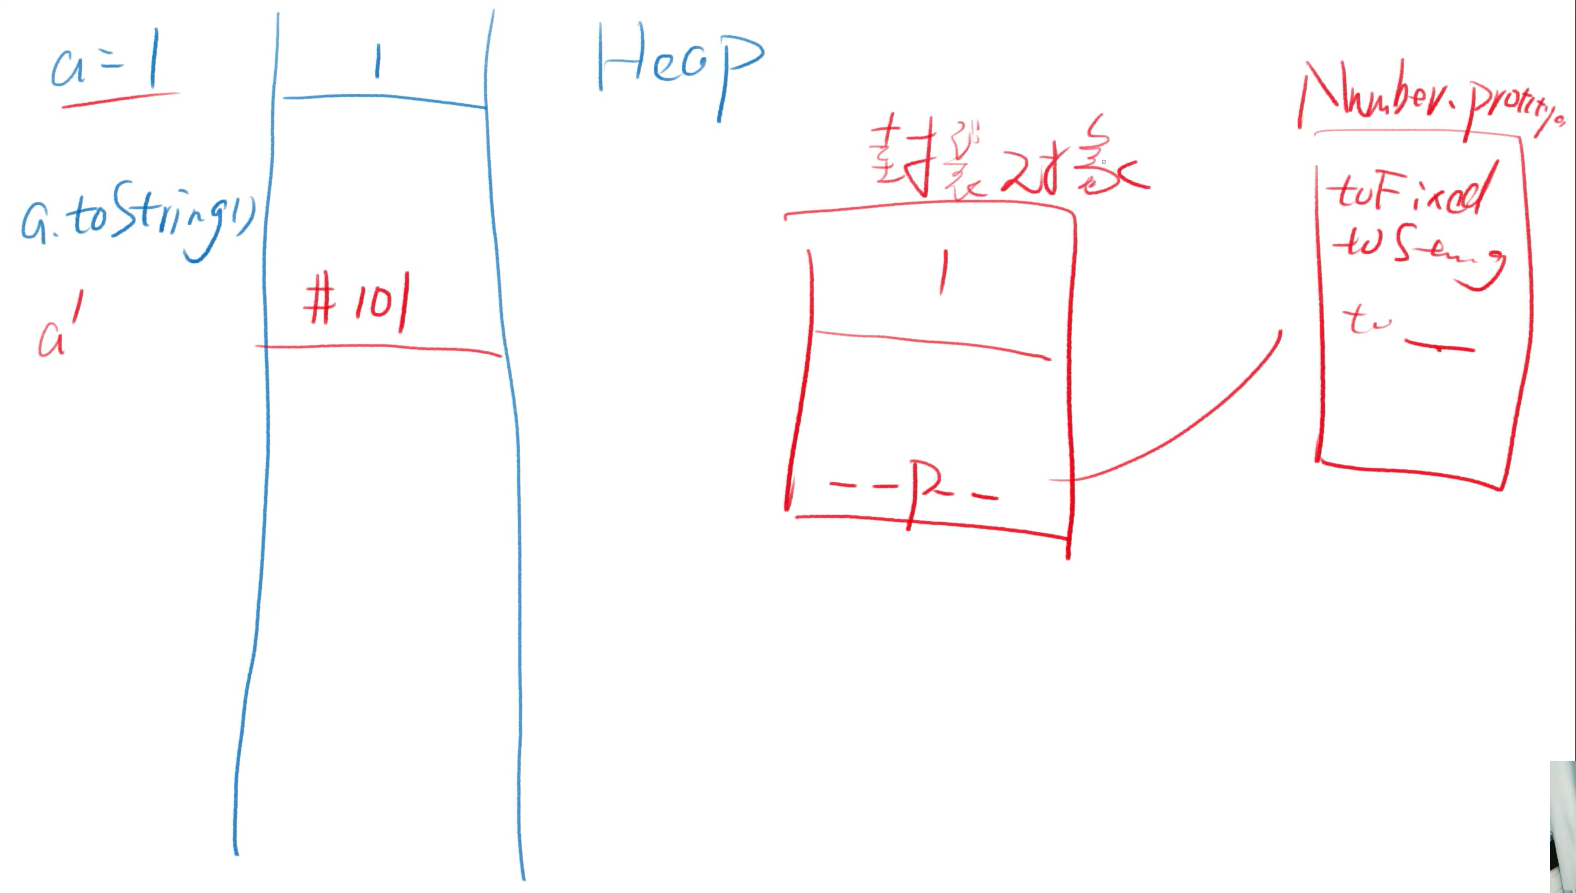 a=1
1
Heap
a.toString()
a'
#101
封装对象
1
--P--
Number.prototype
toFixed
toString
to __